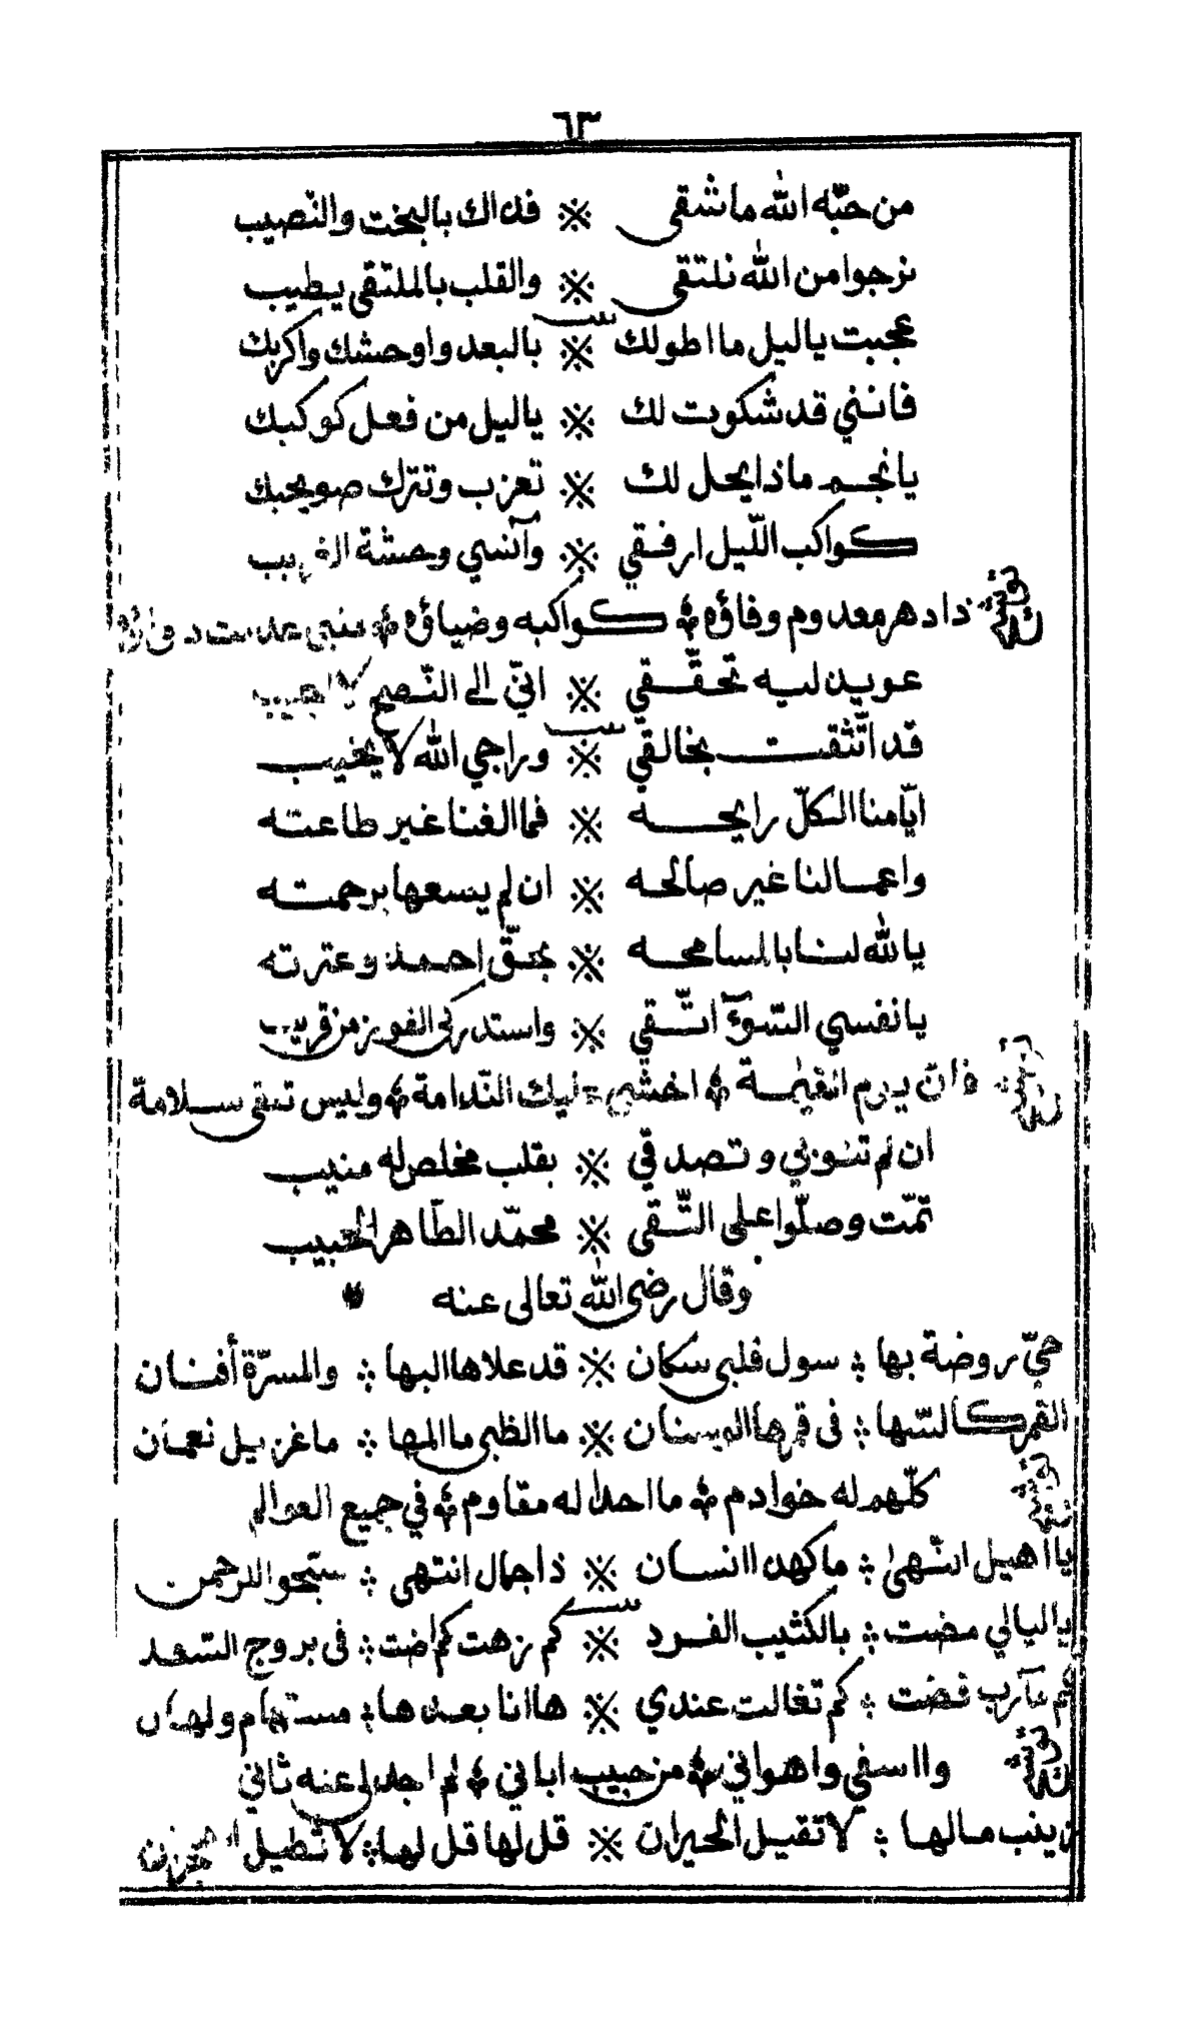 ٦٣
من حبّه الله ما شقي ※ فذاك بالبخت والنّصيب
نرجوا من الله نلتقي ※ والقلب بالملتقى يطيب
عجبت يا ليل ما اطولك ※ بالبعد واوحشك واكربك
بيت
فانني قد شكوت لك ※ ياليل من فعل كوكبك
يانجم ماذا يحل لك ※ تعزب وتترك صويحبك
كواكب اللّيل ارفقي ※ وآنسي وحشة الغريب
توشيح
ذا دهر معدوم وفاؤه ؞ كواكبه وضياؤه ؞
عويذليه تحقّقي ※ انّي الى النّصح لا اجيب
قد اتّثقت بخالقي ※ وراجي الله لا يخيب
بيت
ايّامنا الكلّ رايحه ※ فما الغنا غير طاعته
واعمالنا غير صالحه ※ ان لم يسعها برحمته
يالله لنا بالمسامحه ※ بحقّ احمد وعترته
يانفسي السّوءَ اتّقي ※ واستدركى الفوز من قريب
توشيح
الغنيمة ؞ اخشى عليك النّدامة ؞ وليس تبقى سلامة
ان لم تنوبي وتصدقي ※ بقلب مخلص له منيب
تمّت وصلّوا على التّقى ※ محمّد الطّاهر الحبيب
وقال رضى الله تعالى عنه
حيّ روضة بها ؞ سول قلبى سكان ※ قد علاها البها ؞ والمسرّة أفنان
القمر كالسّها ؞ فى قمرها ※ ما الظبى ما المها ؞ ما غزيل نعمان
توشيح
كلّهم له خوادم ؞ ما احدا له مقاوم ؞ في جميع العوالم
يا اهيل النّهىٰ ؞ ما كهذا انسان ※ ذا جمال انتهى ؞ سبّحو الرحمن
ياليالي مضت ؞ بالكثيب الفرد ※ كم زهت كم اضت ؞ فى بروج السّعد
بيت
كم مآرب قضت ؞ كم تغالت عندي ※ ها انا بعدها ؞ مستهام ولهان
توشيح
وا اسفي واهواني ؞ من حبيب اباني ؞ لم اجد لى عنه ثاني
زينب مالها ؞ لا تقيل الحيران ※ قل لها قل لها ؞ لا تطيل